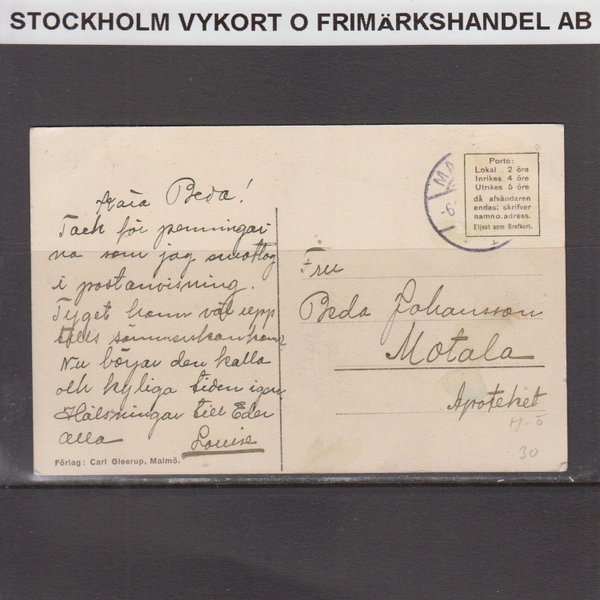 STOCKHOLM VYKORT O FRIMÄRKSHANDEL AB
Kära Beda!
Tack för penningar
na som jag mottog
i postanvisning.
Tyget hann väl upp
tills sömmerskan kom.
Nu börjar den kalla
och kyliga tiden igen.
Hälsningar till Eder
alla Louise
Förlag: Carl Gleerup, Malmö.
Porto:
Lokal . 2 öre
Inrikes 4 öre
Utrikes 5 öre
då afsändaren
endas: skrifver
namn o. adress.
Eljest som Brefkort.
Fru
Beda Johansson
Motala
Apoteket
M-ö
30